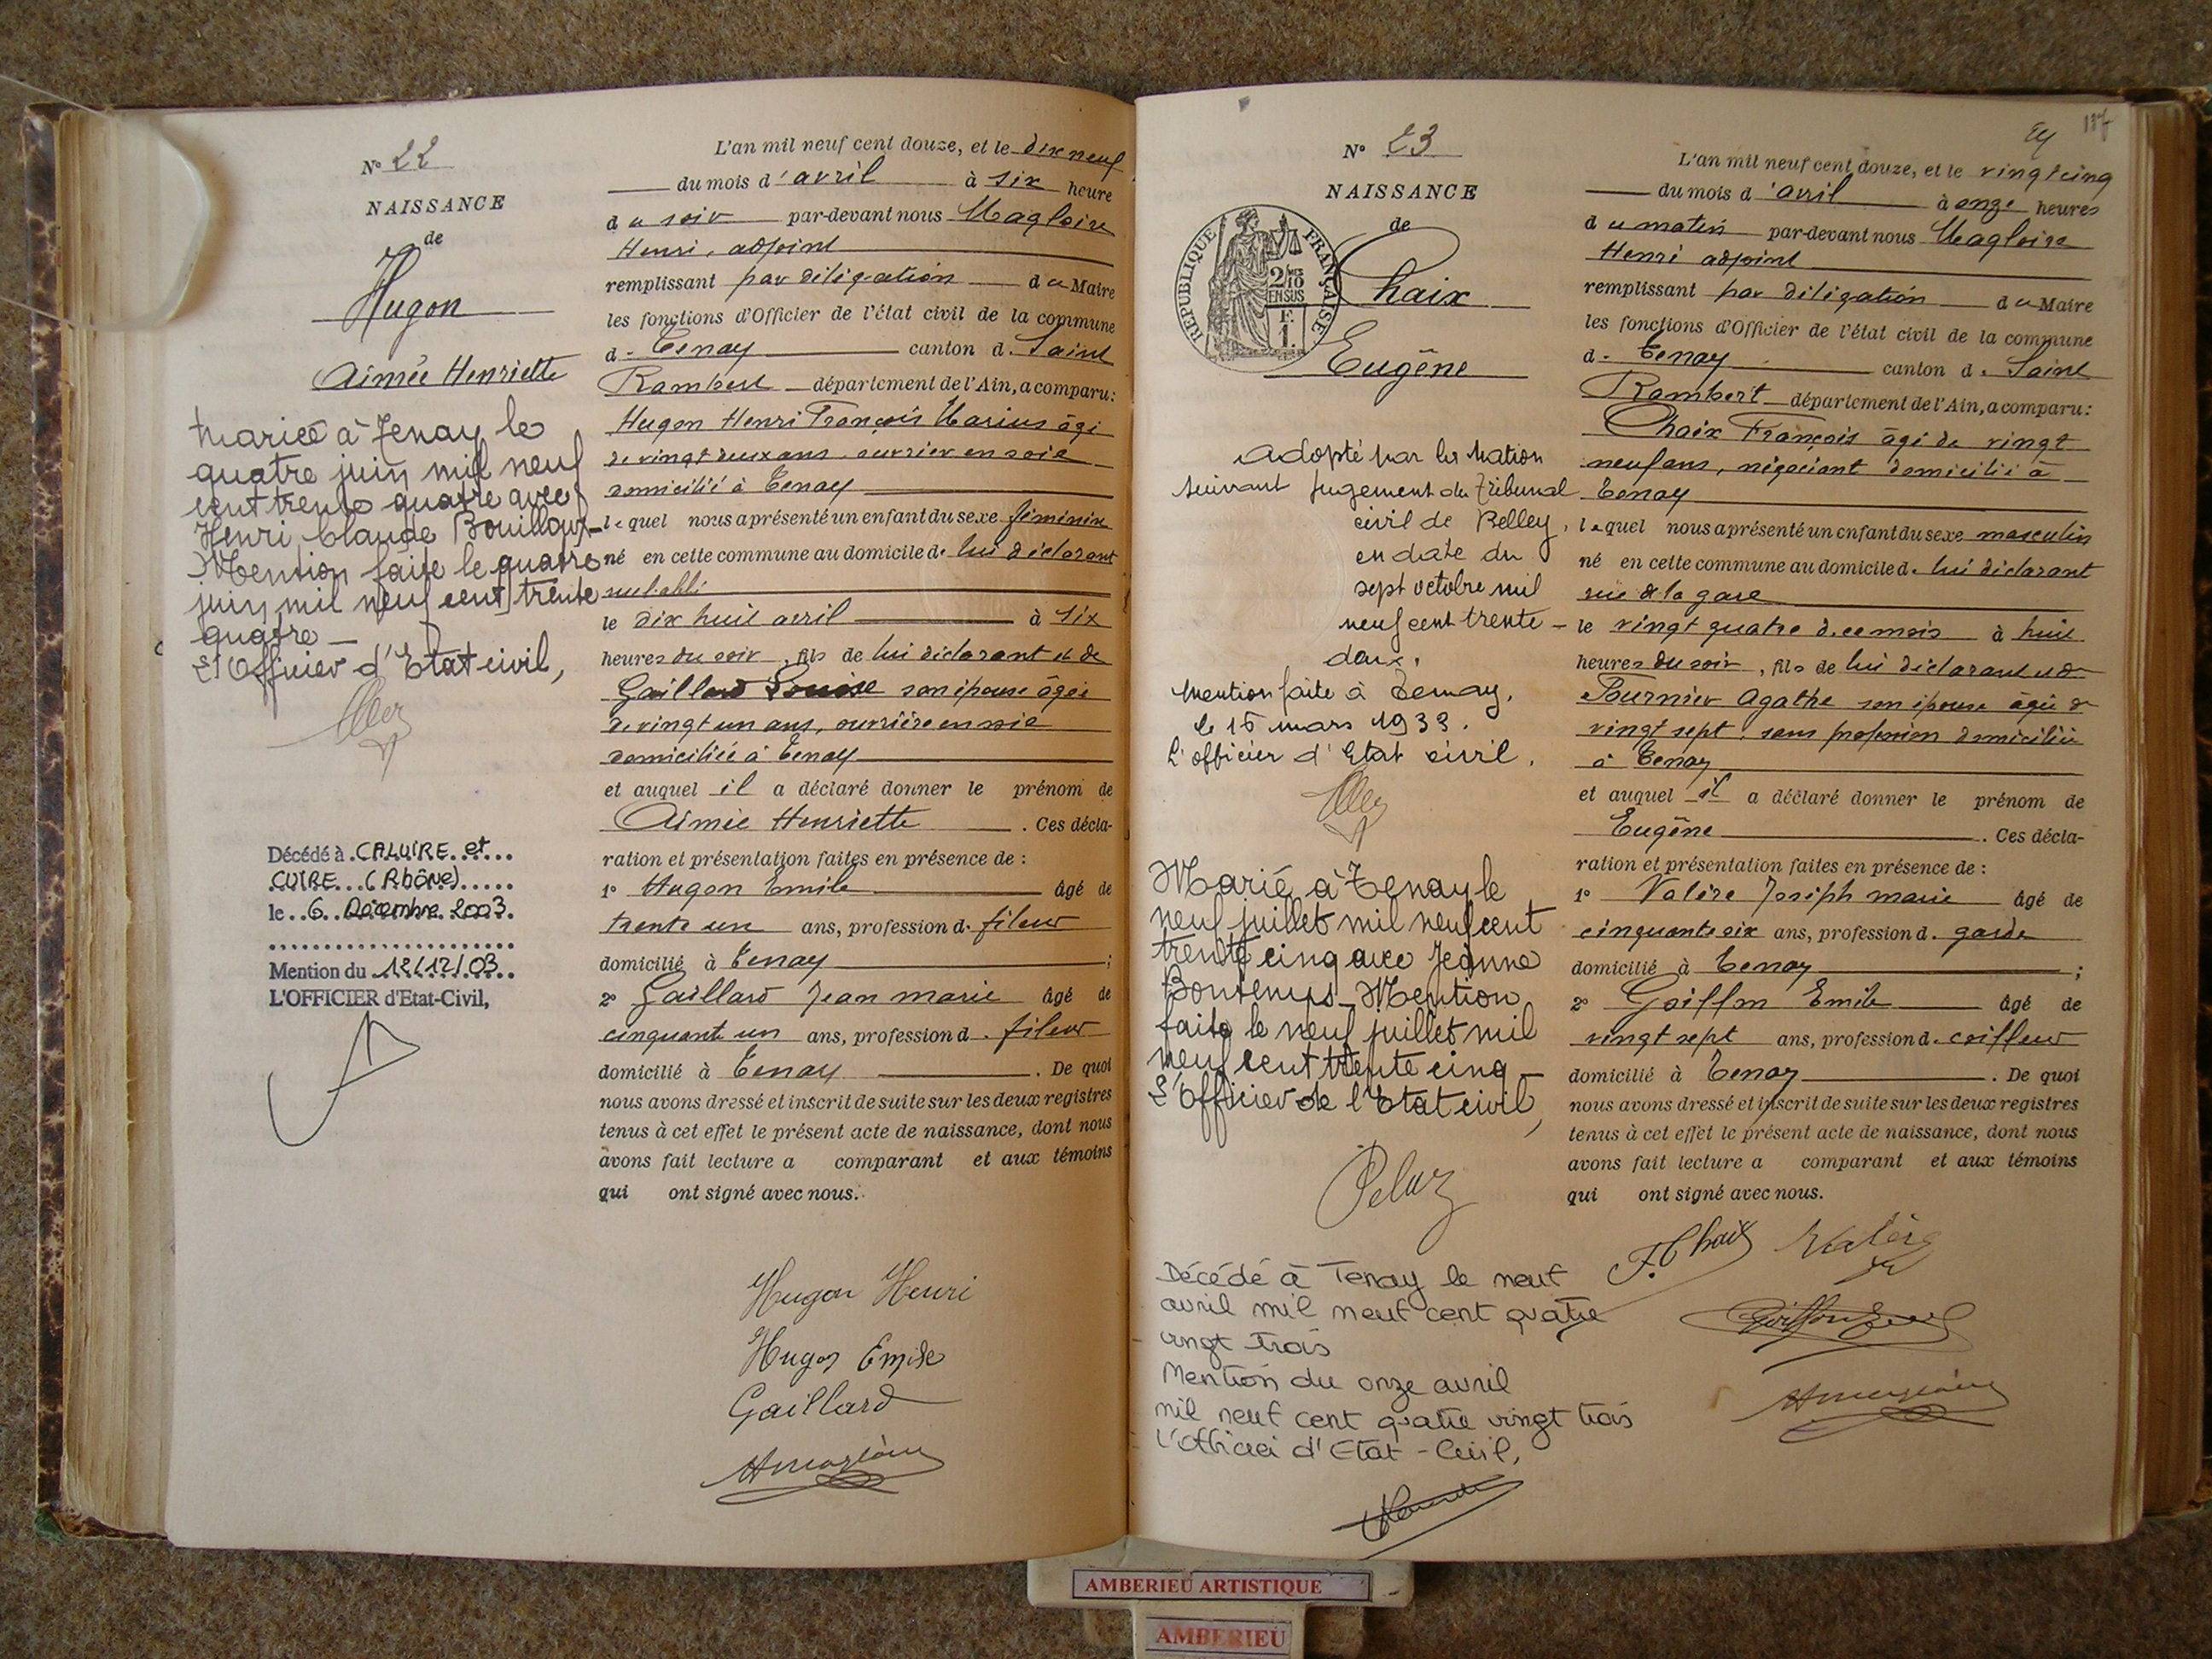 N° 22
NAISSANCE
de
Hugon
Aimée Henriette
Mariée à Tenay le
quatre juin mil neuf
cent trente quatre avec
Henri Claude Bouilloux
Mention faite le quatre
juin mil neuf cent trente
quatre
L'Officier d'Etat civil,
Décédé à CALUIRE et
CUIRE (Rhône)
le 6 Décembre 2003.
Mention du 12/12/03
L'OFFICIER d'Etat-Civil,
L'an mil neuf cent douze, et le dix neuf
du mois d'avril à six heure
du soir par-devant nous Magloire
Henri, adjoint
remplissant par délégation du Maire
les fonctions d'Officier de l'état civil de la commune
de Tenay canton de Saint
Rambert département de l'Ain, a comparu:
Hugon Henri François Marius âgé
de vingt deux ans ouvrier en soie
domicilié à Tenay
lequel nous a présenté un enfant du sexe féminin
né en cette commune au domicile de lui déclarant
le dix huit avril à six
heures du soir, fils de lui déclarant et de
Gaillard Louise son épouse âgée
de vingt un ans, ouvrière en soie
domiciliée à Tenay
et auquel il a déclaré donner le prénom de
Aimée Henriette. Ces décla-
ration et présentation faites en présence de :
1° Hugon Emile âgé de
trente un ans, profession de fileur
domicilié à Tenay ;
2° Gaillard Jean marie âgé de
cinquante un ans, profession de fileur
domicilié à Tenay. De quoi
nous avons dressé et inscrit de suite sur les deux registres
tenus à cet effet le présent acte de naissance, dont nous
avons fait lecture a comparant et aux témoins
qui ont signé avec nous.
Hugon Henri
Hugon Emile
Gaillard
HMagloire
137
N° 23
NAISSANCE
de
Chaix
Eugène
REPUBLIQUE FRANÇAISE
2/10
EN SUS
F.
1.
Adopté par la Nation
suivant jugement du Tribunal
civil de Belley,
en date du
sept octobre mil
neuf cent trente
deux.
Mention faite à Tenay,
le 15 mars 1933.
L'officier d'Etat civil.
Marié à Tenay le
neuf juillet mil neuf cent
trente cinq avec Jeanne
Bontemps Mention
faite le neuf juillet mil
neuf cent trente cinq
L'Officier de l'Etat civil,
Pelaz
Décédé à Tenay le neuf
avril mil neuf cent quatre
vingt trois
Mention du onze avril
mil neuf cent quatre vingt trois
L'Officier d'Etat-Civil,
L'an mil neuf cent douze, et le vingt cinq
du mois d'avril à onze heures
du matin par-devant nous Magloire
Henri adjoint
remplissant par délégation du Maire
les fonctions d'Officier de l'état civil de la commune
de Tenay canton de Saint
Rambert département de l'Ain, a comparu:
Chaix François âgé de vingt
neuf ans, négociant domicilié à
Tenay
lequel nous a présenté un enfant du sexe masculin
né en cette commune au domicile de lui déclarant
rue de la gare
le vingt quatre de ce mois à huit
heures du soir, fils de lui déclarant et de
Fournier Agathe son épouse âgée de
vingt sept, sans profession domiciliée
à Tenay
et auquel il a déclaré donner le prénom de
Eugène. Ces décla-
ration et présentation faites en présence de :
1° Valère Joseph marie âgé de
cinquante six ans, profession de garde
domicilié à Tenay ;
2° Goiffon Emile âgé de
vingt sept ans, profession de coiffeur
domicilié à Tenay. De quoi
nous avons dressé et inscrit de suite sur les deux registres
tenus à cet effet le présent acte de naissance, dont nous
avons fait lecture a comparant et aux témoins
qui ont signé avec nous.
F. Chaix Valère
Goiffon
HMagloire
AMBERIEU ARTISTIQUE
AMBERIEU